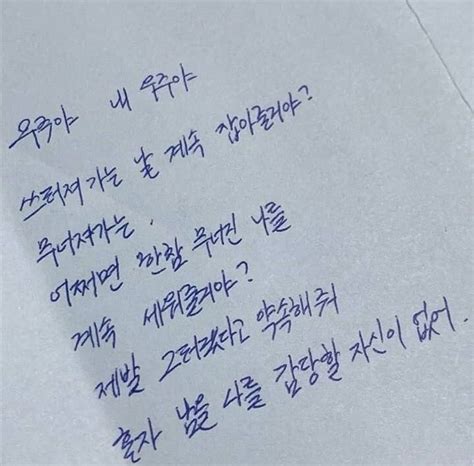 우주야 내 우주야
쓰러져가는 날 계속 잡아줄거야?
무너져가는.
어쩌면 한참 무너진 나를
계속 세워줄거야?
제발 그러겠다고 약속해줘
혼자 남을 나를 감당할 자신이 없어.